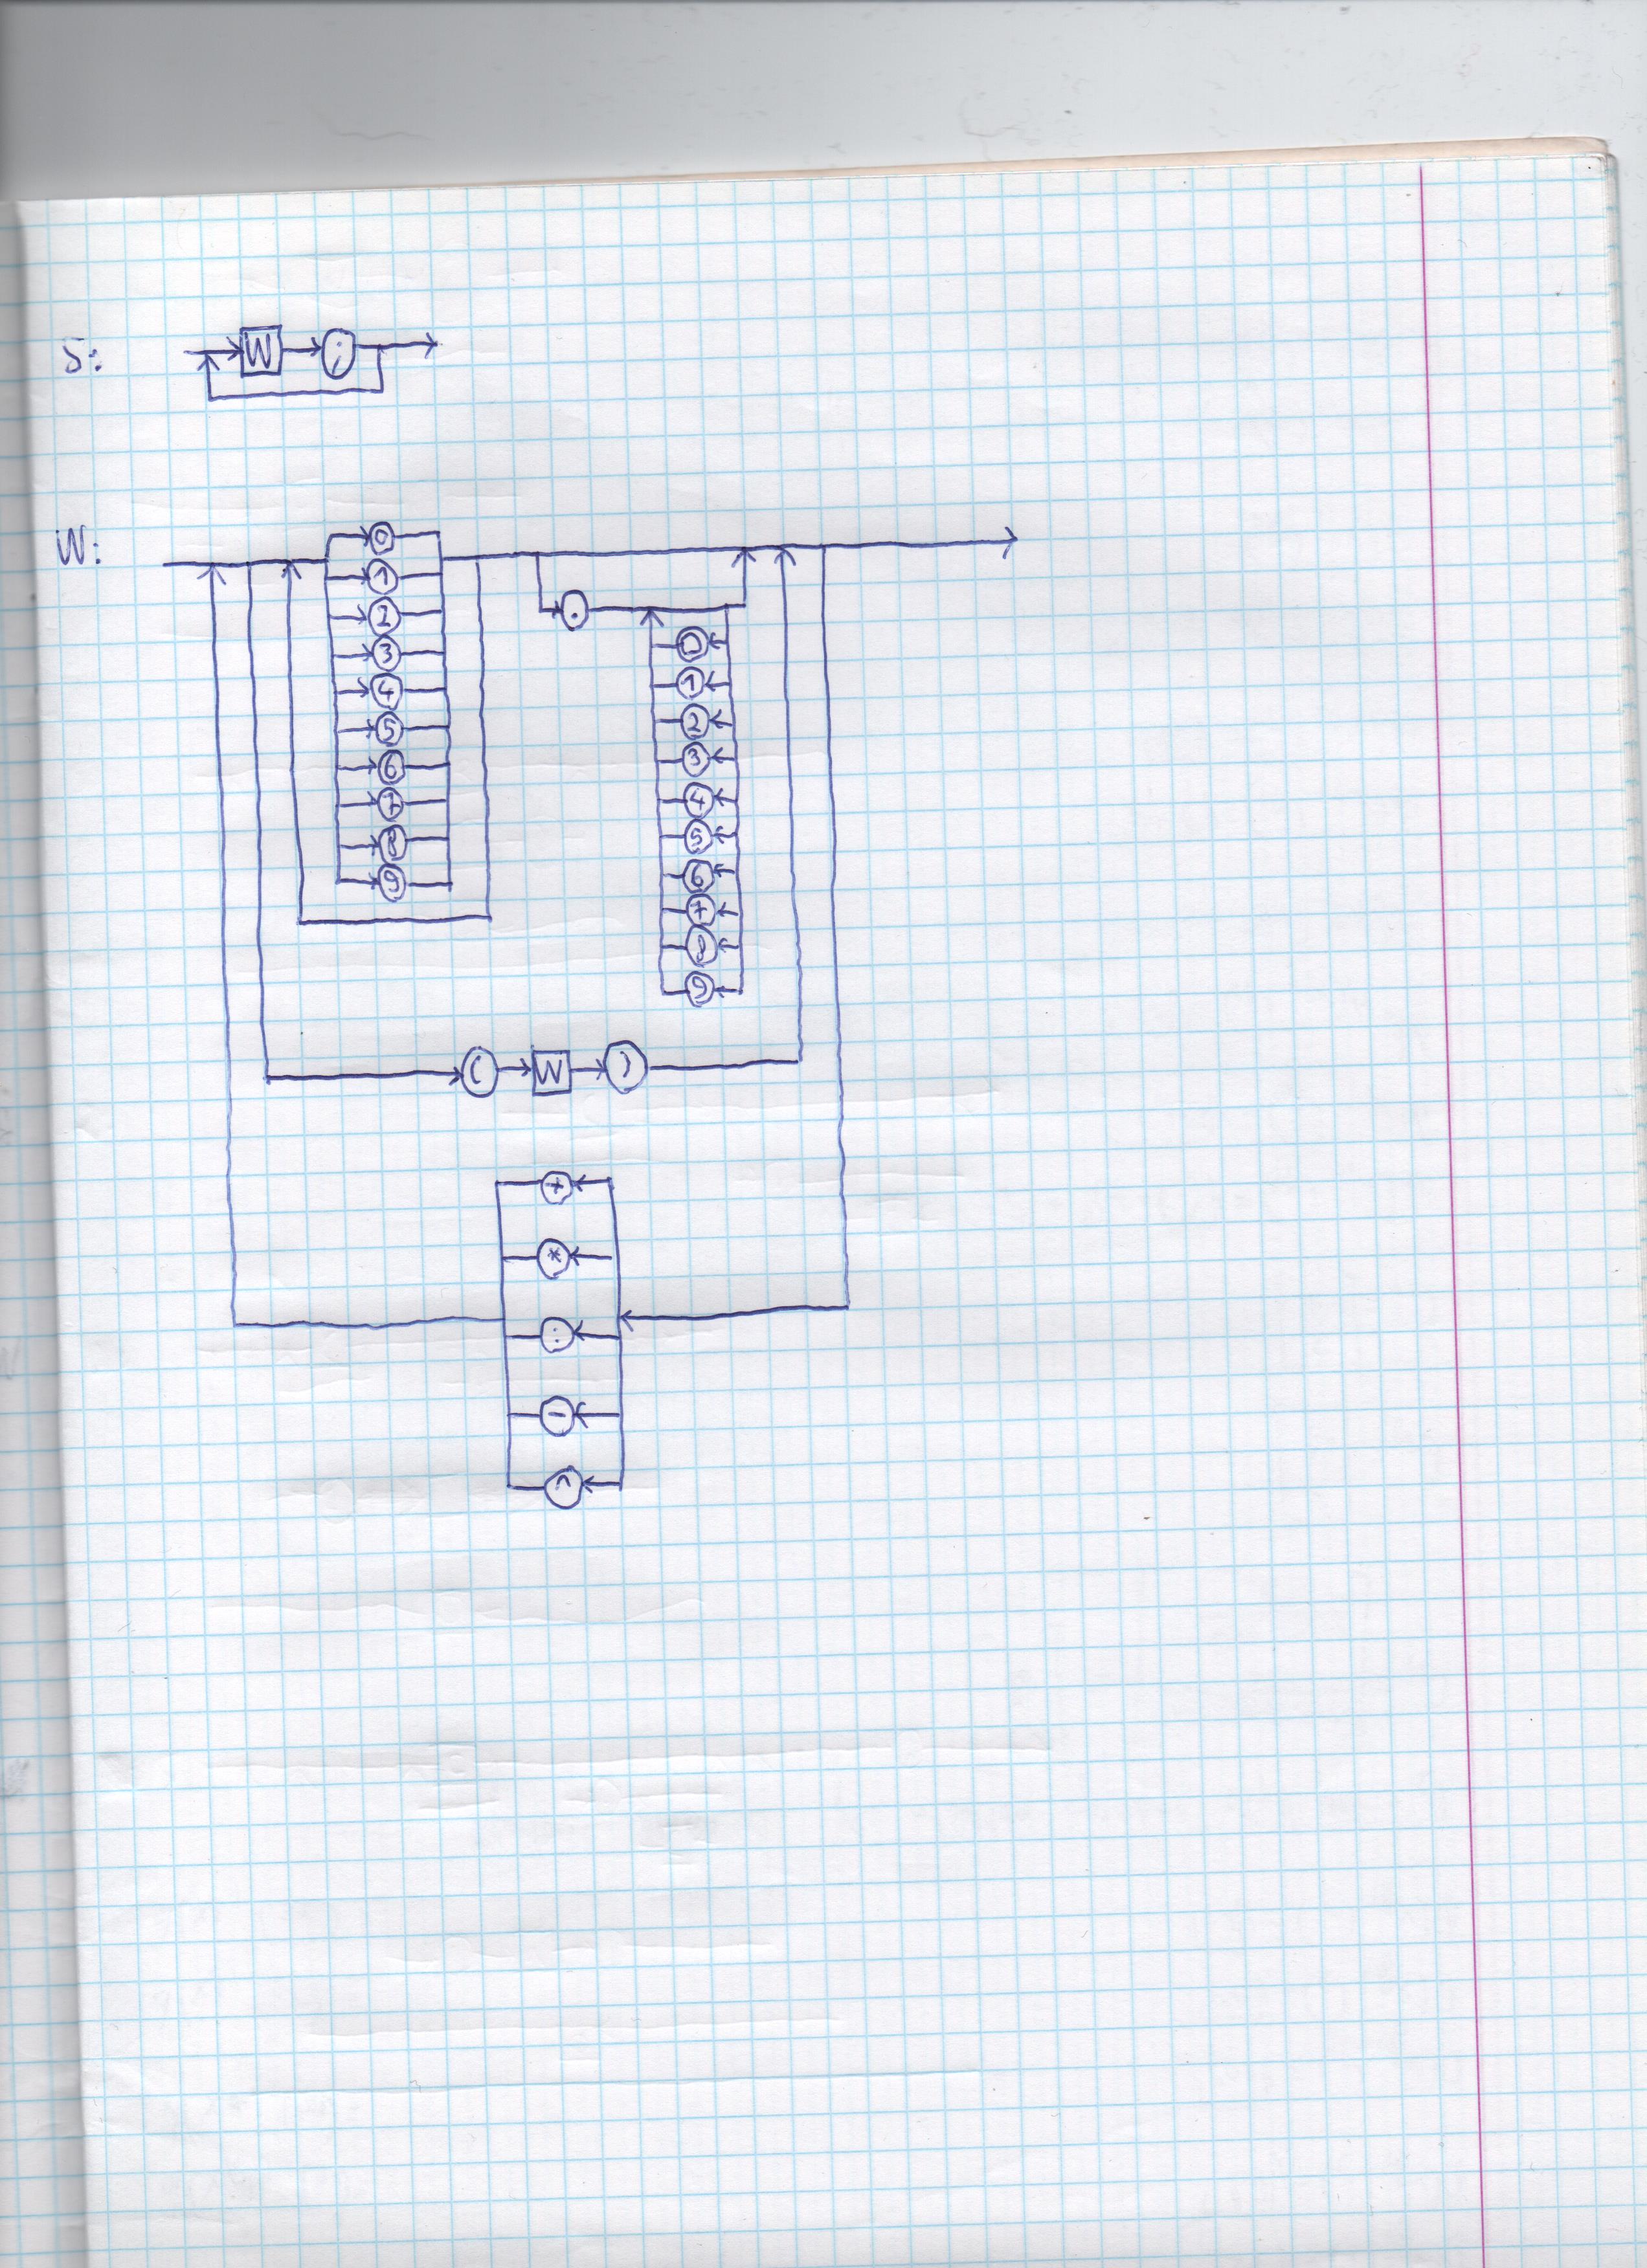 S: W ;
W: 0
1
2
3
4
5
6
7
8
9
.
0
1
2
3
4
5
6
7
8
9
( W )
+
*
:
-
^